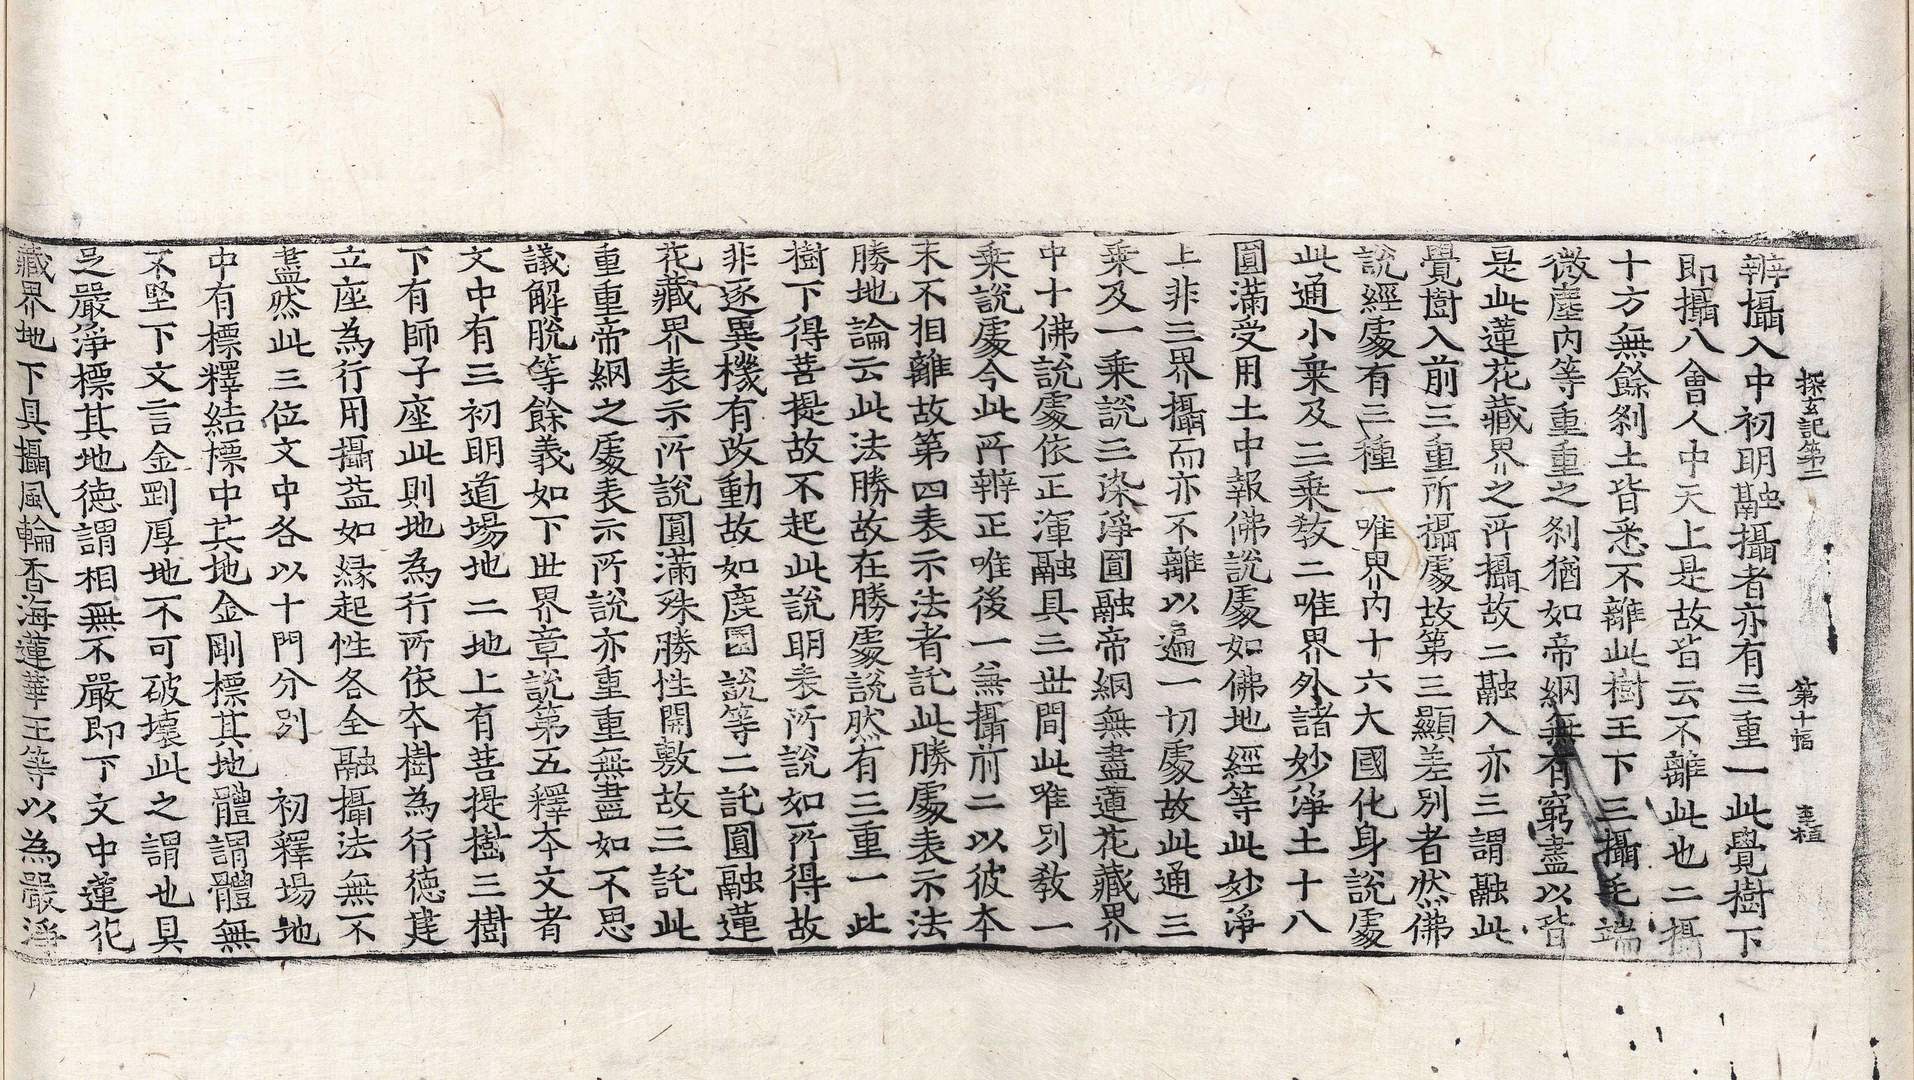 探玄記第二　第十幅　李植
辨攝入中初明融攝者亦有三重一此覺樹下
即攝八會人中天上是故皆云不離此也二攝
十方無餘刹土皆悉不離此樹王下三攝毛端
微塵內等重重之刹猶如帝網無有窮盡以皆
是此蓮花藏界之所攝故二融入亦三謂融此
覺樹入前三重所攝處故第三顯差別者然佛
說經處有三種一唯界內十六大國化身說處
此通小乗及三乗教二唯界外諸妙淨土十八
圓滿受用土中報佛說處如佛地經等此妙淨
上非三界攝而亦不離以遍一切處故此通三
乗及一乗說三染淨圓融帝網無盡蓮花藏界
中十佛說處依正渾融具三世間此唯別教一
乗說處今此所辨正唯後一兼攝前二以彼本
末不相離故第四表示法者託此勝處表示法
勝地論云此法勝故在勝處說然有三重一此
樹下得菩提故不起此說明表所說如所得故
非逐異機有改動故如鹿園說等二託圓融蓮
花藏界表示所說圓滿殊勝性開敷故三託此
重重帝網之處表示所說亦重重無盡如不思
議解脫等餘義如下世界章說第五釋本文者
文中有三初明道場地二地上有菩提樹三樹
下有師子座此則地為行所依本樹為行德建
立座為行用攝益如緣起性各全融攝法無不
盡然此三位文中各以十門分別　初釋場地
中有標釋結標中其地金剛標其地體謂體無
不堅下文言金剛厚地不可破壞此之謂也具
足嚴淨標其地德謂相無不嚴即下文中蓮花
藏界地下具攝風輪香海蓮華王等以為嚴淨